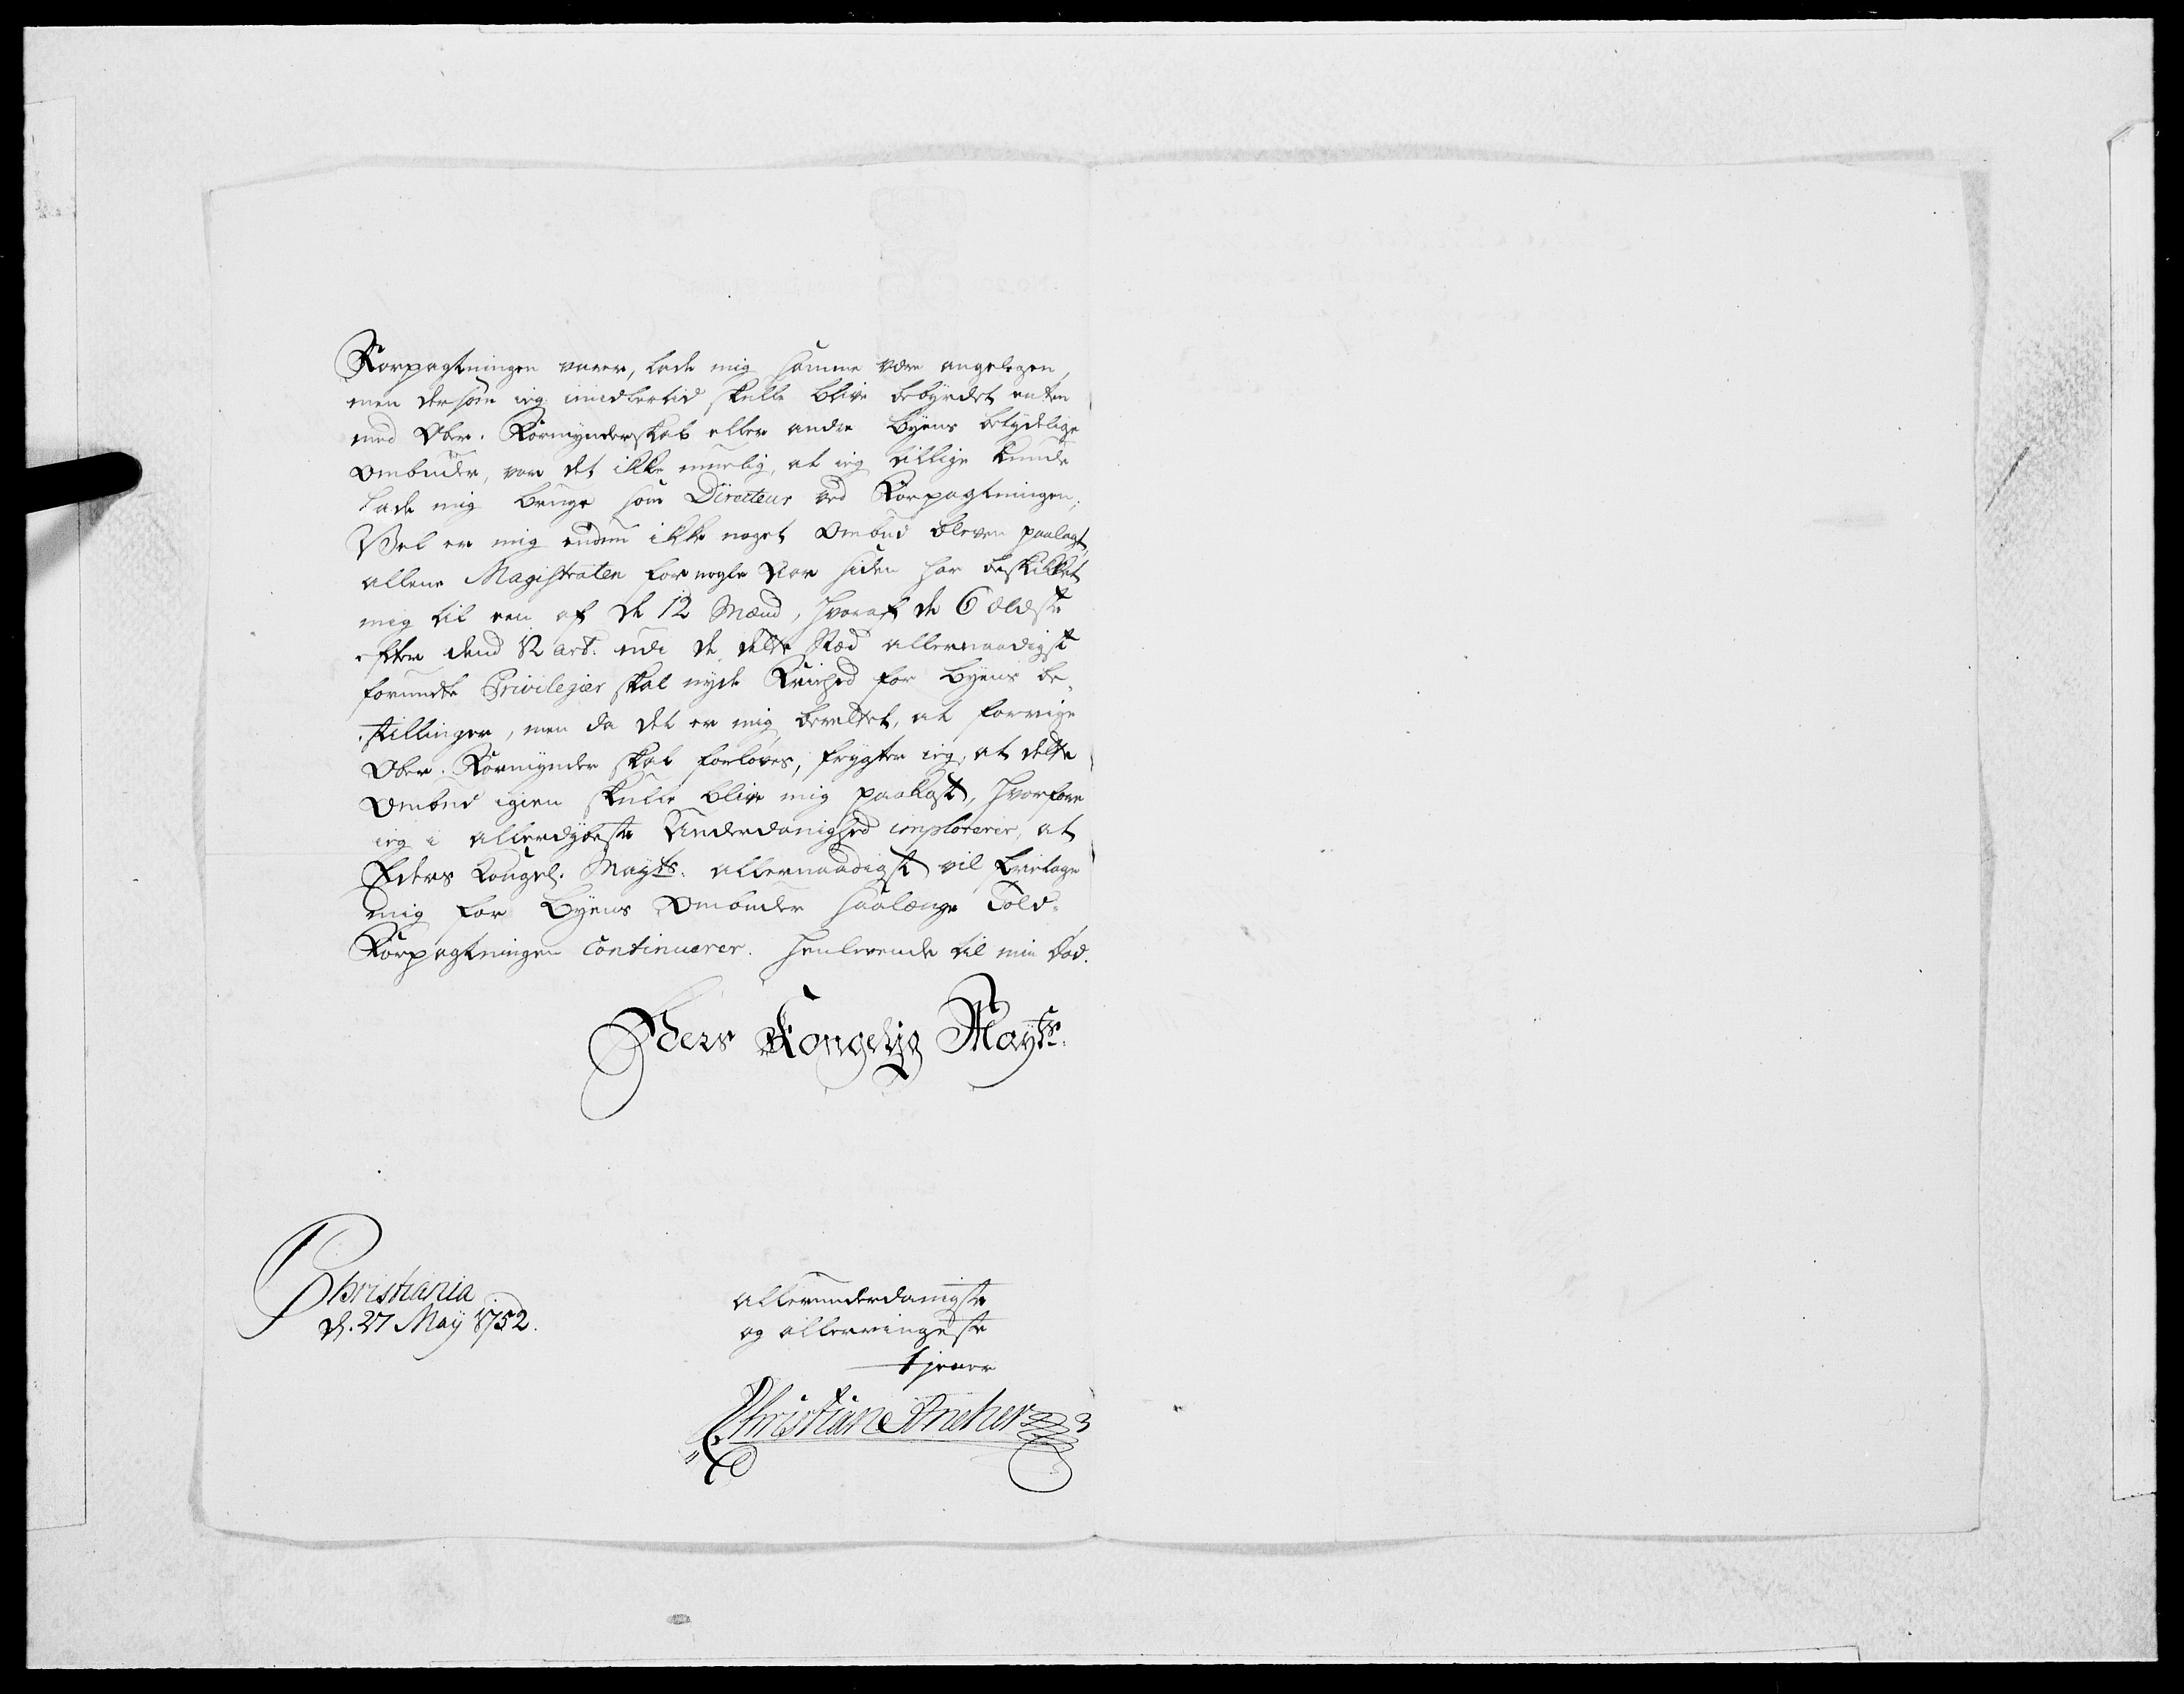 Forpagtningen varer, lade mig samme være angelegen,
men dersom ieg imidlertid skulle blive bebyrdet enten
med Ober-Formynderskab eller andre Byens betydelige
Ombuder, var det ikke muelig, at ieg tillige kunde
lade mig bruge som Directeur ved Forpagtningen;
Vel er mig endnu ikke noget Ombud bleven paalagt,
allene Magistraten for nogle Aar siden har beskikket
mig til een af de 12 Mænd, hvoraf de 6 ældste
efter dend 12 art. udi de dette Stæd allernaadigst
forundte Privilegier skal nyde Friehed for Byens be-
stillinger, men da det er mig berettet, at forrige
Ober-Formynder skal forløves, frygter ieg, at dette
Ombud igien skulle blive mig paakast, hvorfore
ieg i allerdybeste Underdanighed implorerer, at
Eders Kongel. Mayts. allernaadigst vil fritage
mig for Byens Ombuder saalænge Told-
Forpagtningen Continuerer. henlevende til min Død.
Eders Kongelig Mayts.
Christiania
d. 27 May 1752.
allerunderdanigste
og allerringeste
tjener
Christian Ancher